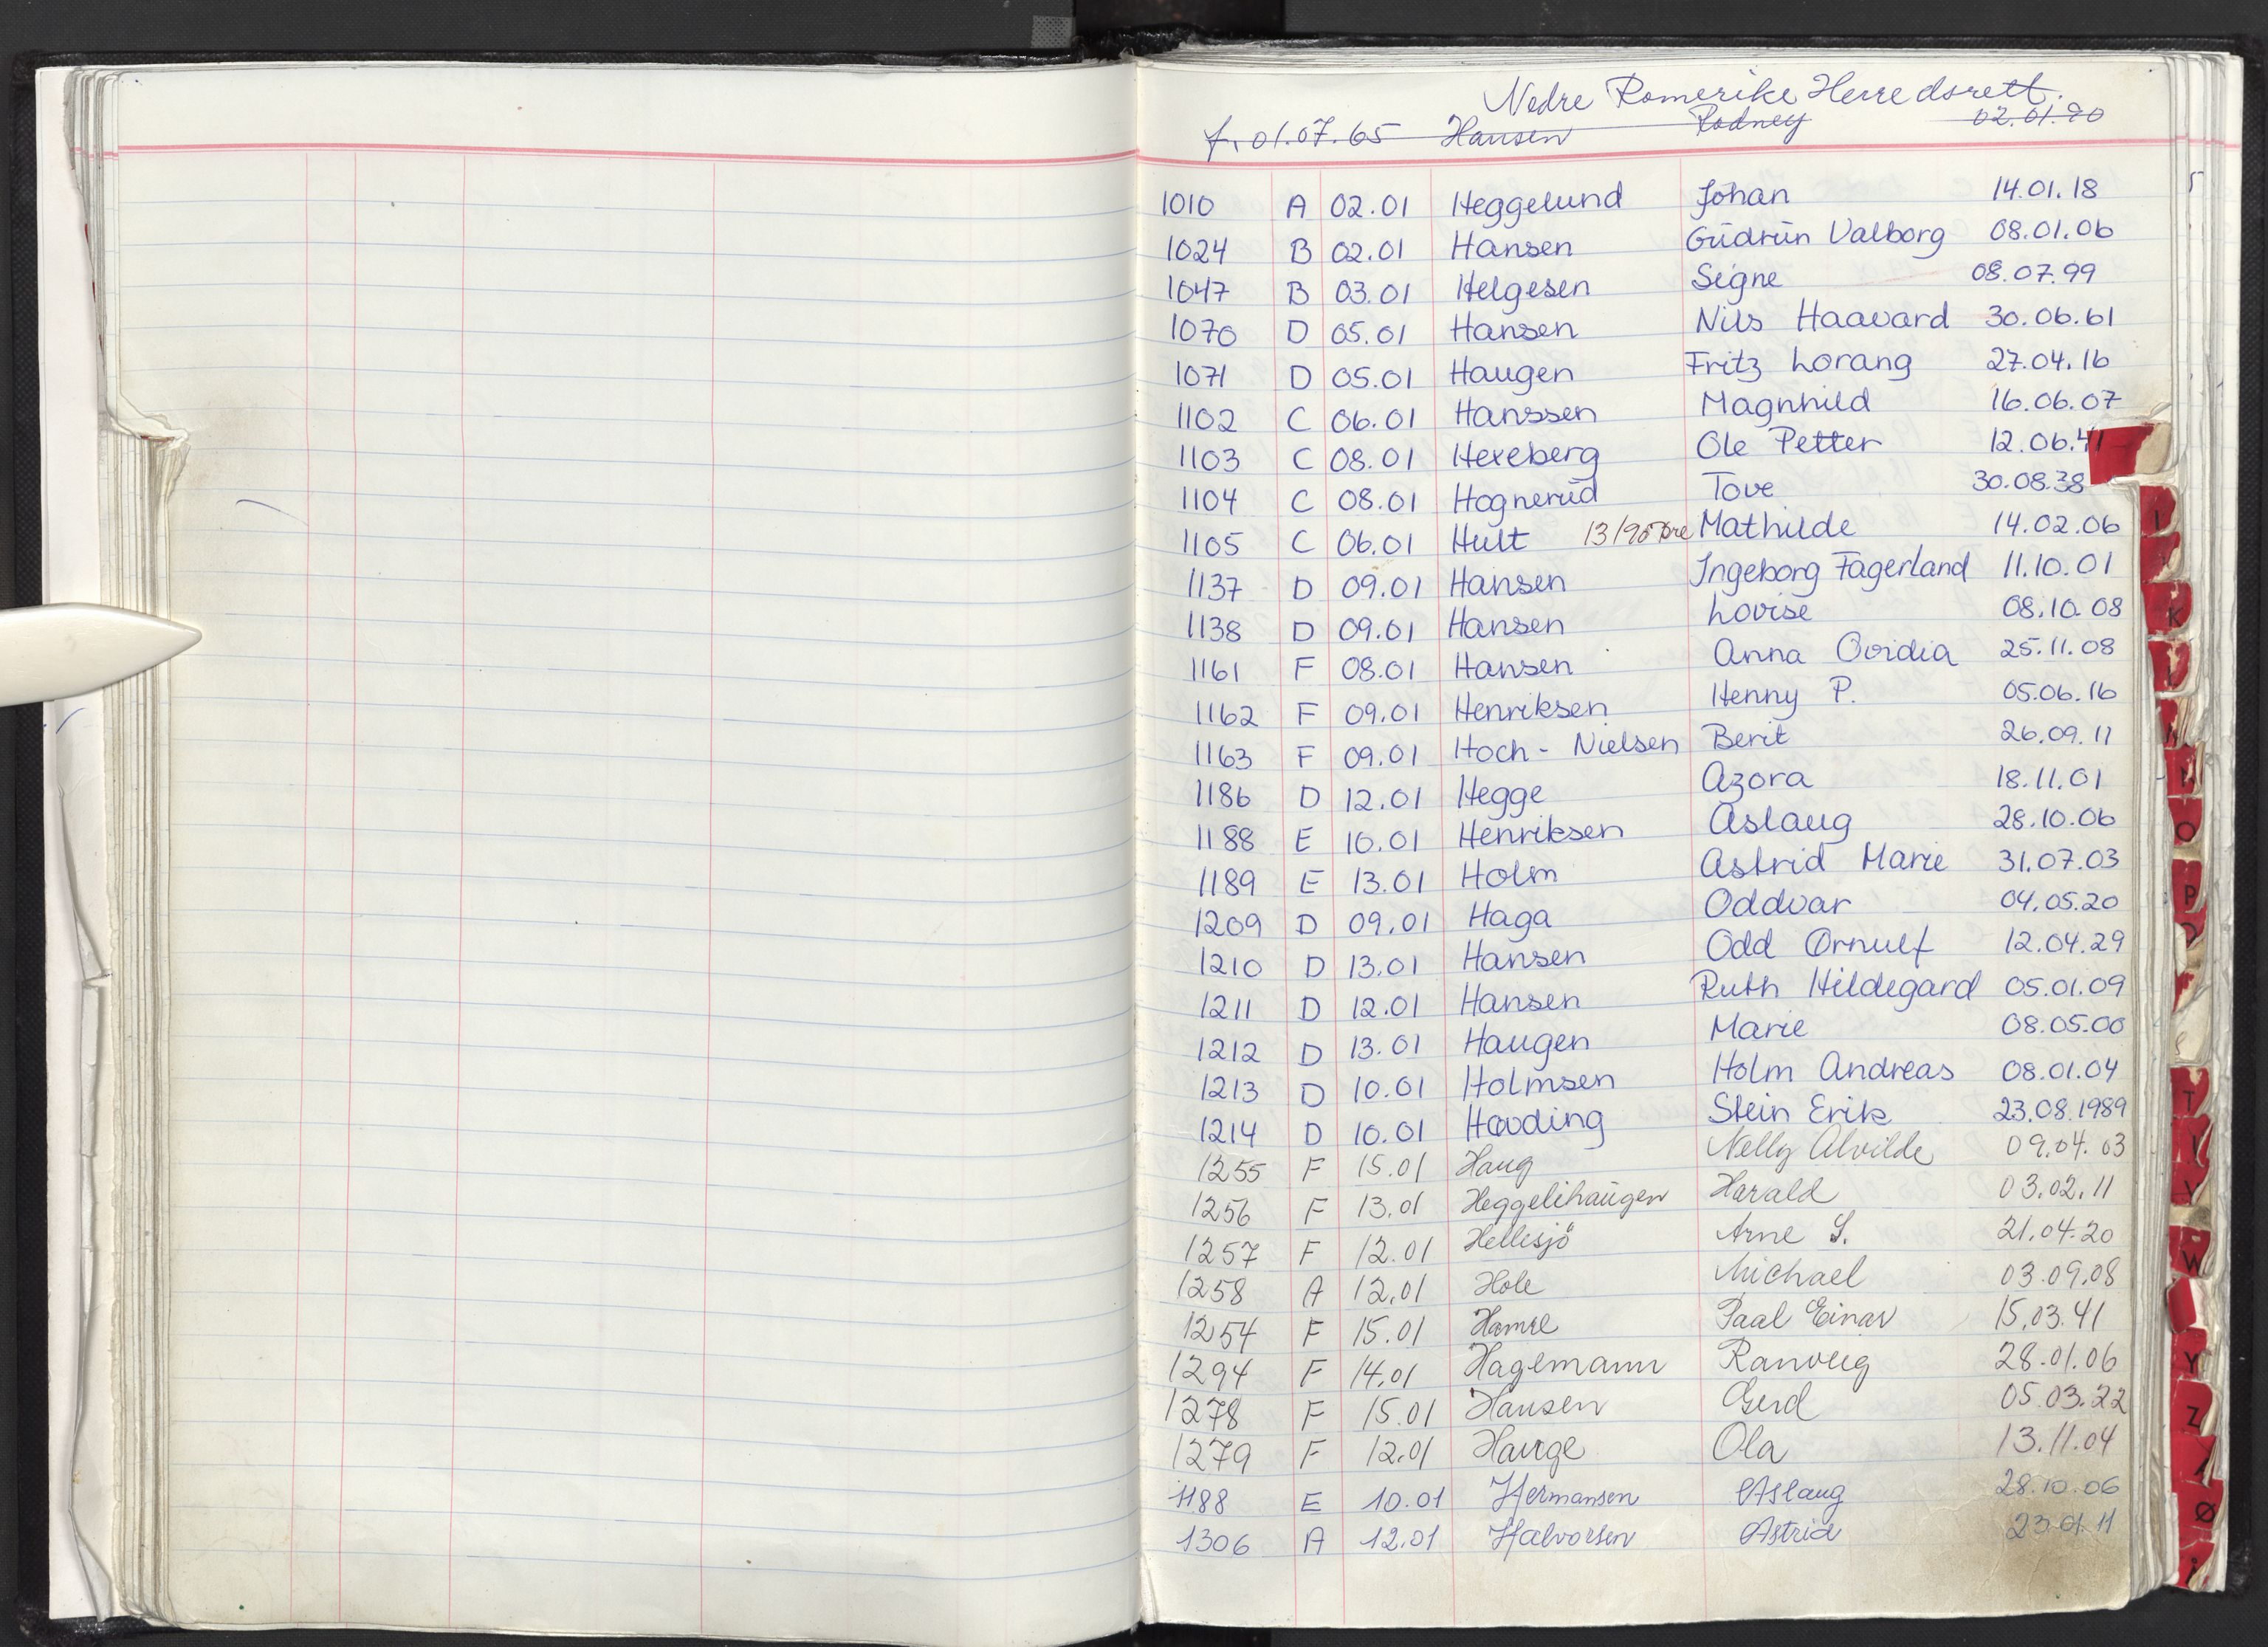 Nedre Romerike Herredsrett.
f. 01.07.65 Hansen Rodney 02.01.90
1010 A 02.01 Heggelund Johan 14.01.18
1024 B 02.01 Hansen Gudrun Valborg 08.01.06
1047 B 03.01 Helgesen Signe 08.07.99
1070 D 05.01 Hansen Nils Haavard 30.06.61
1071 D 05.01 Haugen Fritz Lorang 27.04.16
1102 C 06.01 Hanssen Magnhild 16.06.07
1103 C 08.01 Hexeberg Ole Petter 12.06.41
1104 C 08.01 Hognerud Tove 30.08.38
1105 C 06.01 Hult 13/90 Mathilde 14.02.06
1137 D 09.01 Hansen Ingeborg Fagerland 11.10.01
1138 D 09.01 Hansen Lovise 08.10.08
1161 F 08.01 Hansen Anna Ovidia 25.11.08
1162 F 09.01 Henriksen Henny P. 05.06.16
1163 F 09.01 Hoch-Nielsen Berit 26.09.11
1186 D 12.01 Hegge Azora 18.11.01
1188 E 10.01 Henriksen Aslaug 28.10.06
1189 E 13.01 Holm Astrid Marie 31.07.03
1209 D 09.01 Haga Oddvar 04.05.20
1210 D 13.01 Hansen Odd Ørnulf 12.04.29
1211 D 12.01 Hansen Ruth Hildegard 05.01.09
1212 D 13.01 Haugen Marie 08.05.00
1213 D 10.01 Holmsen Holm Andreas 08.01.04
1214 D 10.01 Høvding Stein Erik 23.08.1989
1255 F 15.01 Haug Nelly Alvilde 09.04.03
1256 F 13.01 Heggelihaugen Harald 03.02.11
1257 F 12.01 Hellesjö Arne S. 21.04.20
1258 A 12.01 Hole Michael 03.09.08
1254 F 15.01 Hamre Paal Einar 15.03.41
1294 F 14.01 Hagemann Ranveig 28.01.06
1278 F 15.01 Hansen Gerd 05.03.22
1279 F 12.01 Hauge Ola 13.11.04
1188 E 10.01 Hermansen Aslaug 28.10.06
1306 A 12.01 Halvorsen Astrid 23.01.11
I
K
N
O
P
T
V
W
Y
Z
Ø